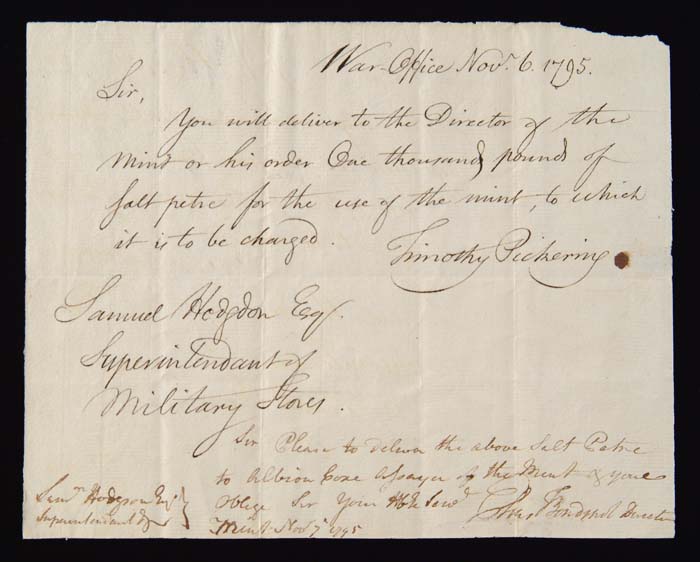 War-Office Nov.r 6. 1795.
Sir,
You will deliver to the Director of the
mint or his order One thousand pounds of
salt petre for the use of the mint, to which
it is to be charged.
Timothy Pickering
Samuel Hodgdon Esq.
Superintendant of
Military Stores.
Sir Please to deliver the above Salt Petre
to Albion Coxe Assayer of the Mint & you
oblige Sir Your Hble Serv.t
Elias Boudinot Director
Mint Nov.r 7 1795
Hodgson Esq
Superintendant &